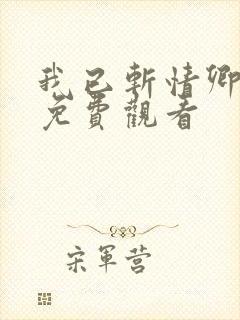 我已斬情卿
免費觀看
宋軍营